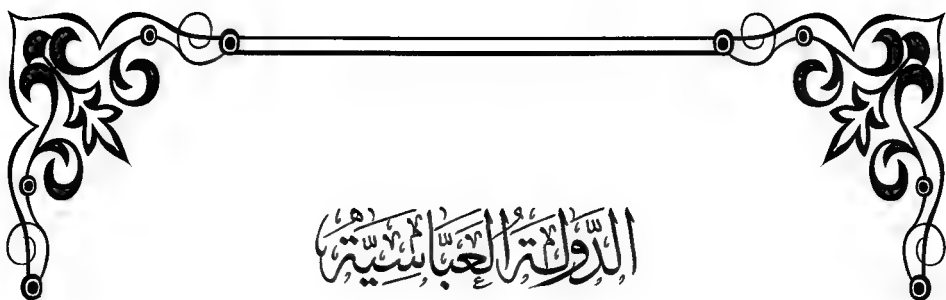 الدَّوْلَةُ العَبَّاسِيَّةُ